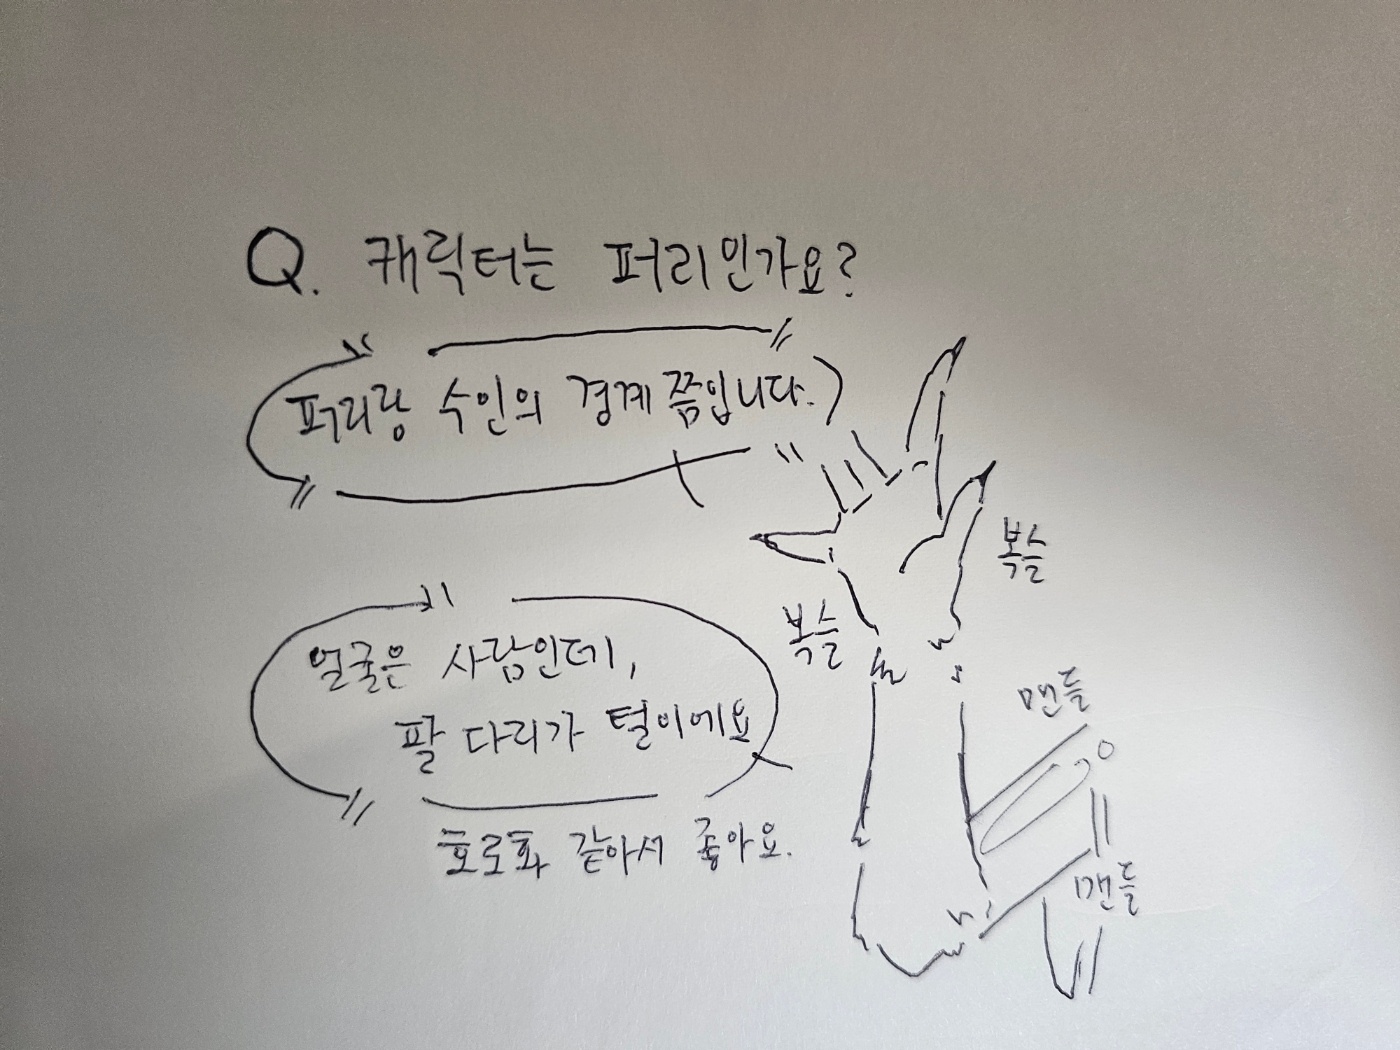 Q. 캐릭터는 퍼리인가요?
퍼리랑 수인의 경계쯤입니다.
얼굴은 사람인데,
팔 다리가 털이에요
흐로화 같아서 좋아요.
복슬
복슬
맨들
맨들